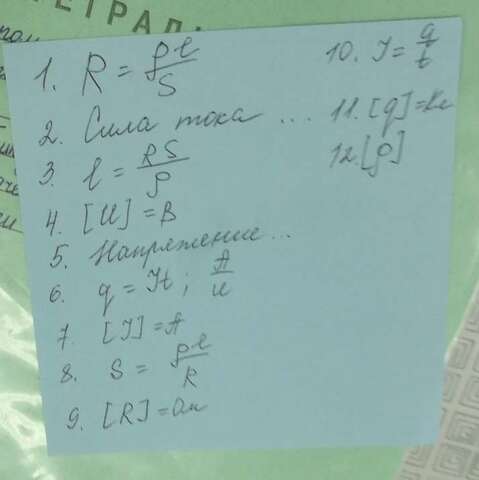 ТЕТРАД
1. R = ρl/S
2. Сила тока ...
3. l = RS/ρ
4. [U] = В
5. Напряжение...
6. q = It ; A/U
7. [I] = A
8. S = ρl/R
9. [R] = Ом
10. I = q/t
11. [q] = Кл
12. [ρ]